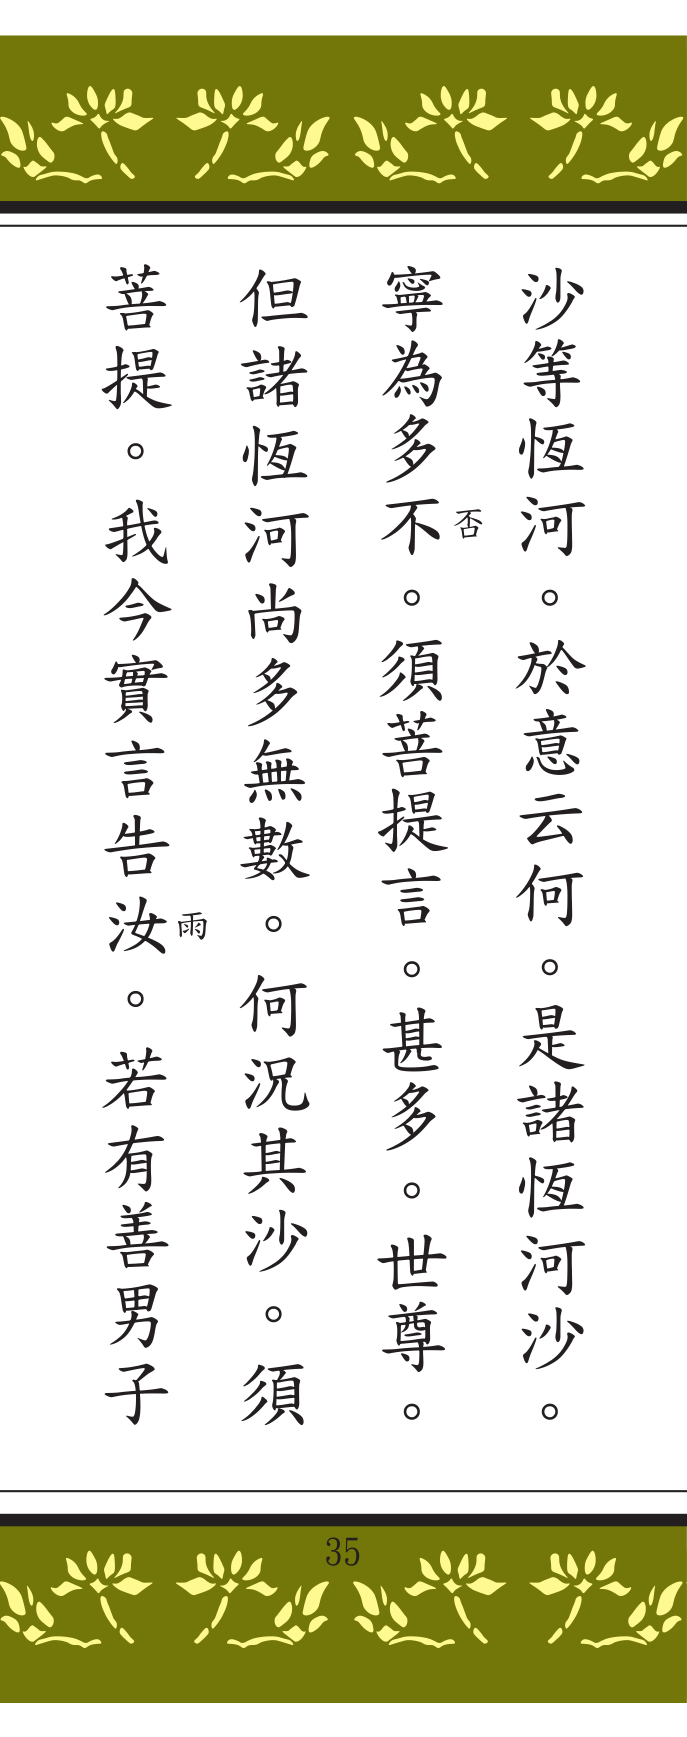 沙等恆河。於意云何。是諸恆河沙。
寧為多不否。須菩提言。甚多。世尊。
但諸恆河尚多無數。何況其沙。須
菩提。我今實言告汝雨。若有善男子
35